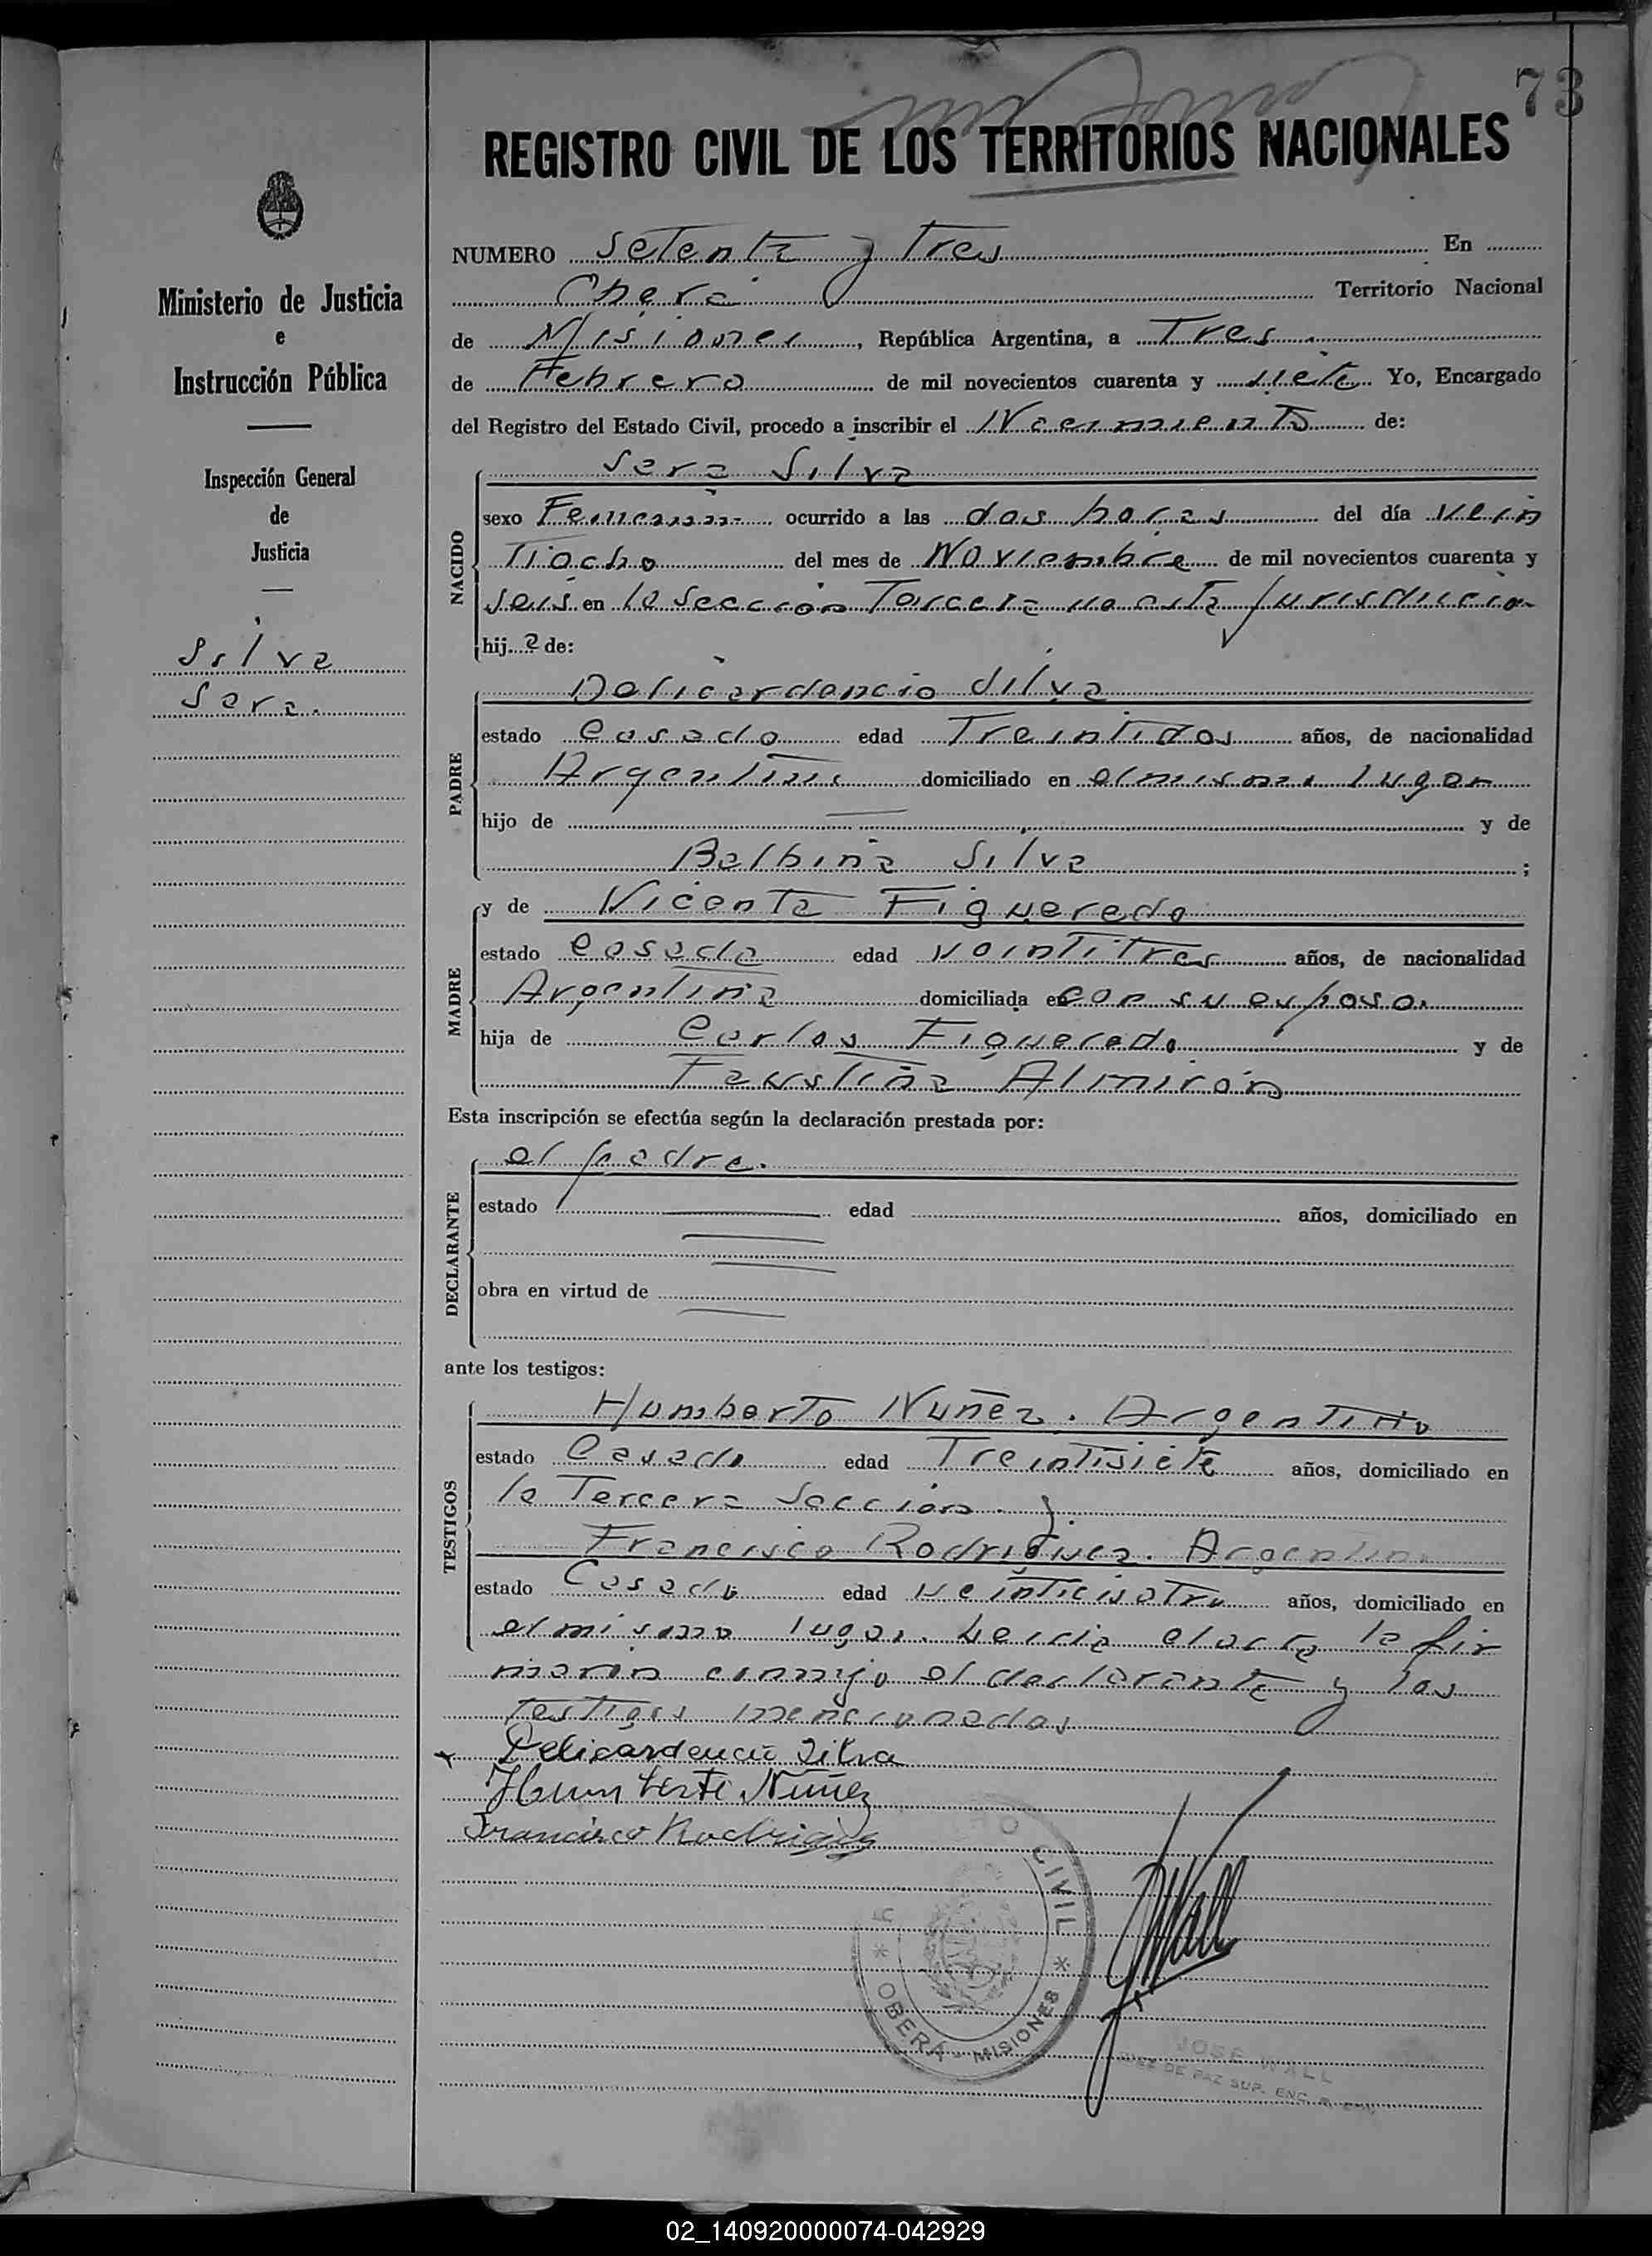 73
REGISTRO CIVIL DE LOS TERRITORIOS NACIONALES
Ministerio de Justicia
e
Instrucción Pública
Inspección General
de
Justicia
Silva
Sara.
NUMERO Setenta y Tres En
Oberá Territorio Nacional
de Misiones, República Argentina, a Tres
de Febrero de mil novecientos cuarenta y siete Yo, Encargado
del Registro del Estado Civil, procedo a inscribir el Nacimiento de:
NACIDO
Sara Silva
sexo Femenino ocurrido a las dos horas del día Vein
Tiocho del mes de Noviembre de mil novecientos cuarenta y
seis en la Sección Tercera de esta Jurisdicción
hij a de:
PADRE
Delicardencio Silva
estado Casado edad Treintidos años, de nacionalidad
Argentina domiciliado en el mismo lugar
hijo de y de
Balbina Silva ;
MADRE
y de Vicenta Figueredo
estado Casada edad Veintitres años, de nacionalidad
Argentina domiciliada en con su esposo.
hija de Carlos Figueredo y de
Faustina Almirón
Esta inscripción se efectúa según la declaración prestada por:
DECLARANTE
el padre.
estado edad años, domiciliado en
obra en virtud de
ante los testigos:
TESTIGOS
Humberto Nuñez. Argentino
estado Casado edad Treintisiete años, domiciliado en
la Tercera Sección. y
Francisco Rodriguez. Argentino
estado Casado edad Veinticuatro años, domiciliado en
el mismo lugar. Leida el acta la fir
maron conmigo el declarante y los
testigos mencionados
x Delicardencio Silva
Humberto Nuñez
Francisco Rodriguez
JWall
CIVIL
* OBERÁ - MISIONES *
JOSE WALL
JUEZ DE PAZ SUP. ENC. R.
02_140920000074-042929